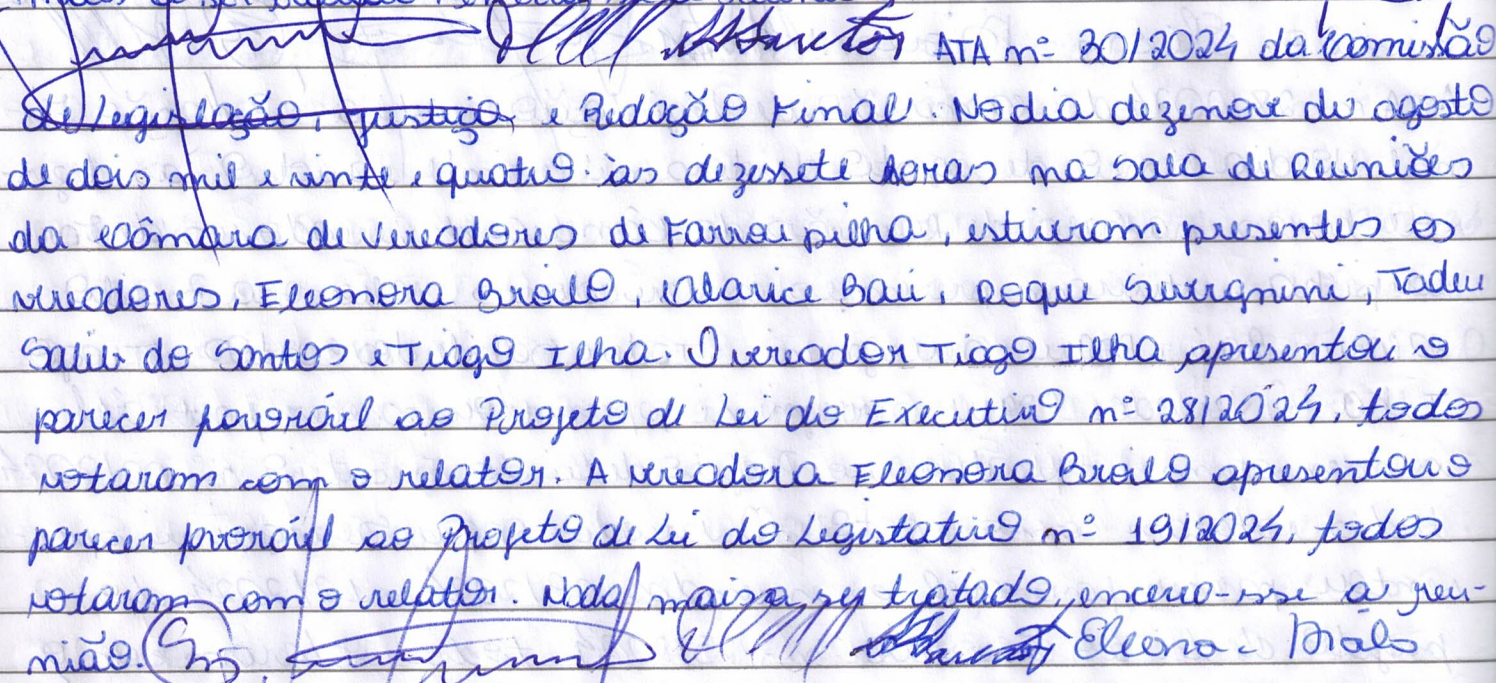 Santos ATA nº 30/2024 da Comissão
de Legislação, Justiça, e Redação Final. No dia dezenove de agosto
de dois mil e vinte e quatro às dezessete horas na Sala de Reuniões
da Câmara de Vereadores de Farroupilha, estiveram presentes os
vereadores, Eleonora Broilo, Calarice Baú, Roque Severgnini, Tadeu
Salib do Santos e Tiago Ilha. O vereador Tiago Ilha apresentou o
parecer favorável ao Projeto de Lei do Executivo nº 28/2024, todos
votaram com o relator. A vereadora Eleonora Broilo apresentou o
parecer favorável ao Projeto de Lei do Legistativo nº 19/2024, todos
votaram com o relator. Nada mais a ser tratado, encerro-sse a reu-
nião. Santos Eleonora Broilo